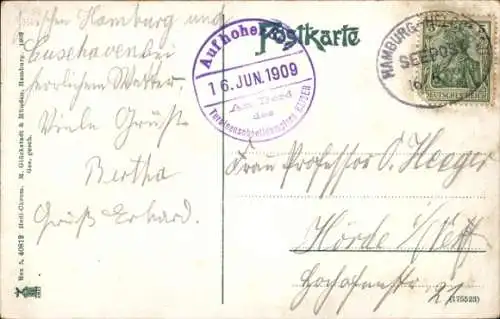 Zwischen Hamburg und
Cuxhaven bei
herrlichem Wetter.
Viele Grüße
Bertha
Gruß Erhard.
Postkarte
Auf hoher
16. JUN. 1909
An Bord
des
Turbinenschnelldampfers KAISER
HAMBURG-
SEEPOST
16
DEUTSCHES REICH
Frau Professor O. Heeger
Hörde i/Westf
21
(175523)
No. A. 40812 Heli-Chrom. M. Glückstadt & Münden, Hamburg.
Ges. gesch.